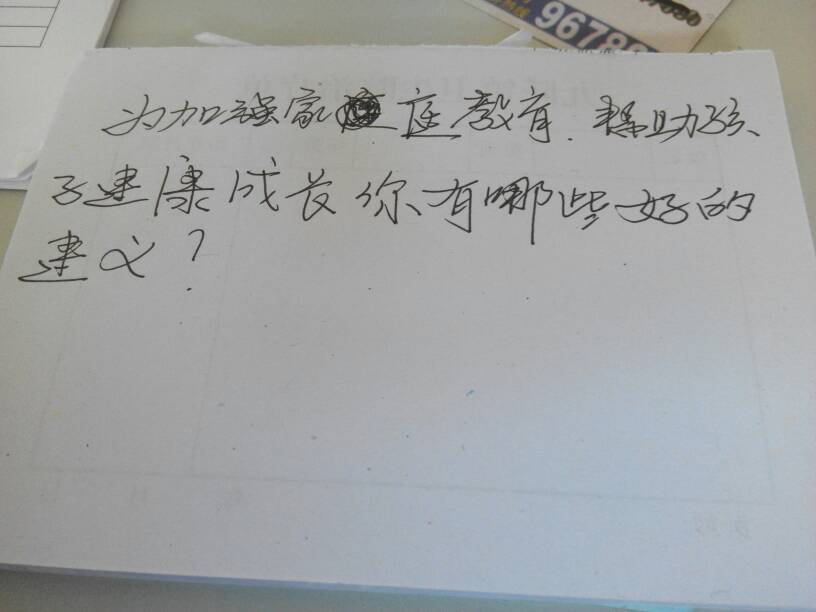 96789
为加强家庭教育.帮助孩
子建康成长你有哪些好的
建义?